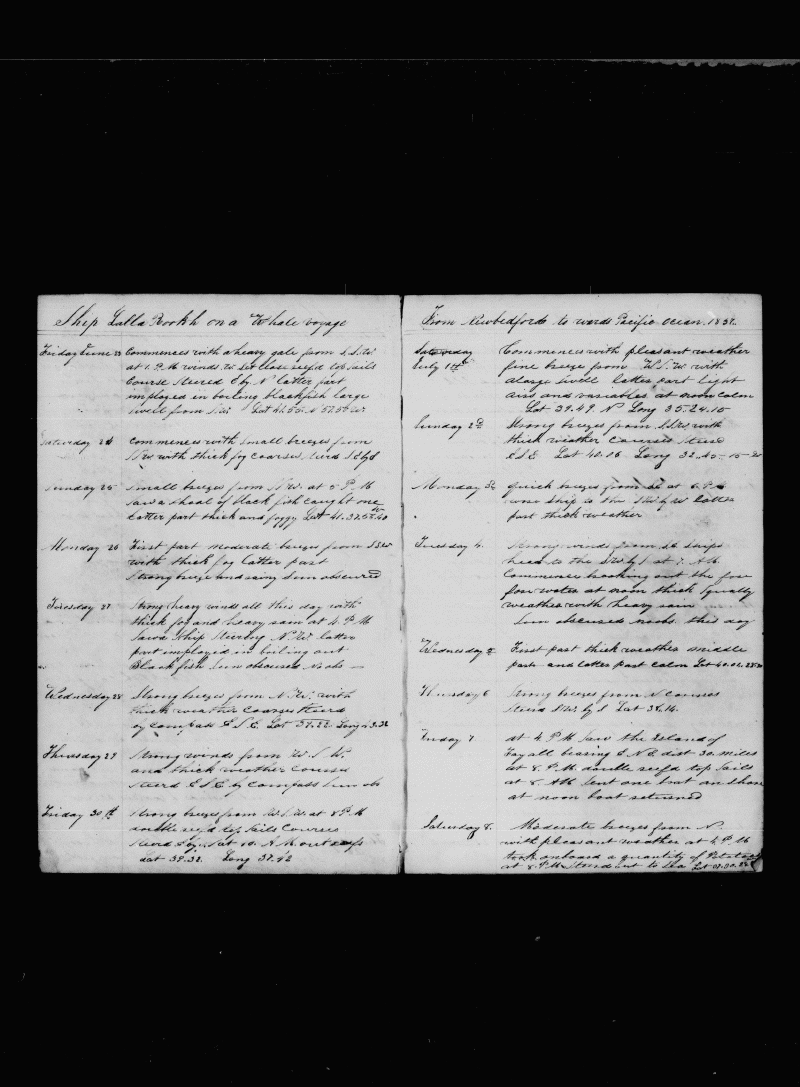 Ship Lalla Rookh on a Whale voyage
Friday June 23 Commences with a heavy gale from S.S.W.
at 1. P.M winds.W. set close reef'd top sails
Course Steerd E by N latter part
imployed in boiling blackfish large
swell from S.W. Lat 41.55. N
Saturday 24 Commences with small breezes from
with thick fog courses Steerd
Sunday 25 Small breezes from at 5 P.M
saw a shoal of black fish caught one
Latter part thick and foggy Lat 41.37
Monday 26 First part moderate breezes from SSW
with thick fog latter part
Strong breeze and rainy Sun obscured
Tuesday 27 Strong heavy winds all this day with
thick fog and heavy rain at 4. P.M
Saw a Ship Steering N.W. latter
part imployed in boiling out
Black fish Sun obscured No obs
Wednesday 28 Strong breezes from N.W. with
thick weather Coarses Steerd
by Compass E S.E. Lat 39.22 Long
Thursday 29 Strong winds from W.S.W.
and thick weather Courses
Steerd E S.E by Compass Sun obs
Friday 30th Strong breezes from W.S.W. at 8 P.M
double reef'd top sails Courses
Steerd at 10. A.M. out reefs
Lat 39.32. Long 37.42
From Newbedford to wards Pacific Ocean. 1837.
Saturday
July 1st Commences with pleasant weather
fine breeze from W.S.W. with
a large swell latter part light
airs and variables, at noon calm
Lat 39.49. N Long 35-24.15
Sunday 2d Strong breezes from S.S.W. with
thick weather Courses Steerd
E S E Lat 40.06 Long 32.45-15
Monday 3d quick breezes from at 6. P.M
one ship to the latter
part thick weather
Tuesday 4. Strong winds from ships
head to the at 7. AM
Commence breaking out the fore
for water at noon thick squally
weather with heavy rain
Sun obscured no obs. this day
Wednesday 5 First part thick weather middle
part and latter part calm Lat 40.02
Thursday 6 Strong breezes from N courses
Steerd by S Lat 38.14.
Friday 7 at 4 P.M Saw the Island of
Fayall bearing E.N.E dist 30. miles
at 8. P.M. double reef'd top Sails
at 8. AM Sent one boat on shore
at noon boat returned
Saturday 8. Moderate breezes from N.
with pleasant weather at 4. P.M
took onboard a quantity of Potatoes
at 8. P.M. Stood out to Sea Lat